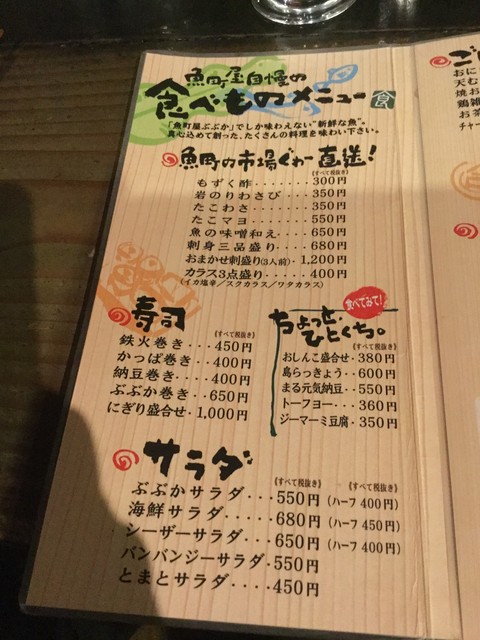 魚町屋自慢の
食べものメニュー 食
「魚町屋ぶぶか」でしか味わえない“新鮮な魚”。
真心込めて創った、たくさんの料理を味わい下さい。
魚町の市場ぐゎー直送!
(すべて税抜き)
もずく酢・・・・・・・300円
岩のりわさび・・・350円
たこわさ・・・・・・・350円
たこマヨ・・・・・・・550円
魚の味噌和え・・・・650円
刺身三品盛り・・・・680円
おまかせ刺盛り(3人前)・1,200円
カラス3点盛り・・・・・400円
(イカ塩辛/スクカラス/ワタカラス)
寿司
(すべて税抜き)
鉄火巻き・・・450円
かっぱ巻き・・400円
納豆巻き・・・・400円
ぶぶか巻き・・650円
にぎり盛合せ・1,000円
食べてみて!
ちょっと、
ひとくち。
(すべて税抜き)
おしんこ盛合せ・380円
島らっきょう・・600円
まる元気納豆・・550円
トーフヨー・・・360円
ジーマーミ豆腐・350円
サラダ
(すべて税抜き) (すべて税抜き)
ぶぶかサラダ・・・550円 (ハーフ 400円)
海鮮サラダ・・・・・680円 (ハーフ 450円)
シーザーサラダ・・650円 (ハーフ 400円)
バンバンジーサラダ・550円
とまとサラダ・・・・450円
ご
おに
天む
焼お
鶏雑
お茶
チャー